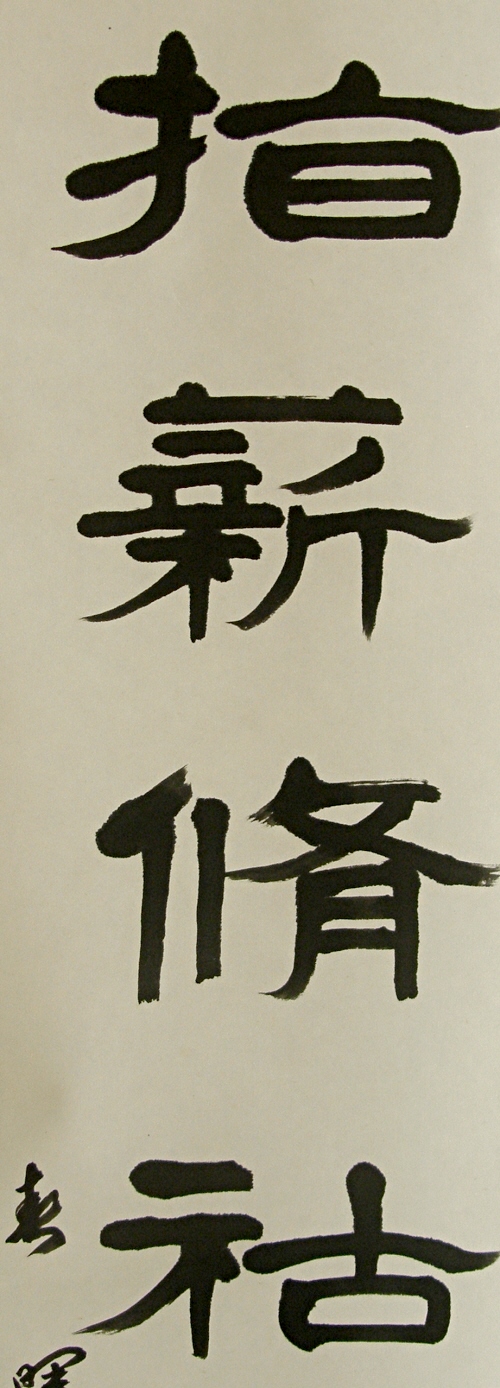 指薪脩祜